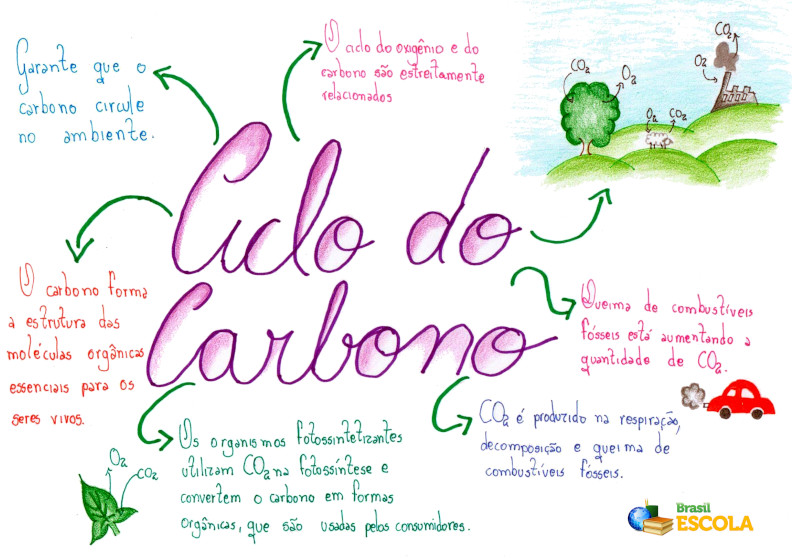 Garante que o
carbono circule
no ambiente.
O ciclo do oxigênio e do
carbono são estreitamente
relacionados
CO₂
O₂
O₂
CO₂
O₂
CO₂
Ciclo do
Carbono
O carbono forma
a estrutura das
moléculas orgânicas
essenciais para os
seres vivos.
Queima de combustíveis
fósseis está aumentando a
quantidade de CO₂.
CO₂ é produzido na respiração,
decomposição e queima de
combustíveis fósseis.
Os organismos fotossintetizantes
utilizam CO₂ na fotossíntese e
convertem o carbono em formas
orgânicas, que são usadas pelos consumidores.
O₂
CO₂
Brasil
ESCOLA